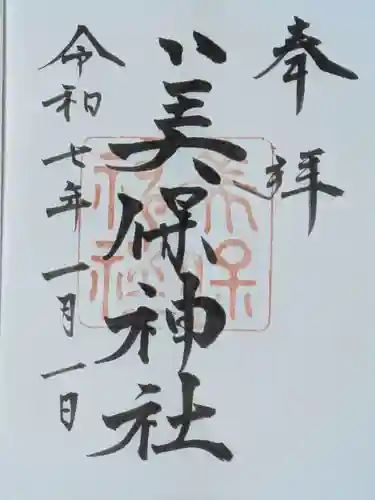 奉拝
美保神社
令和七年一月一日
美保
神社